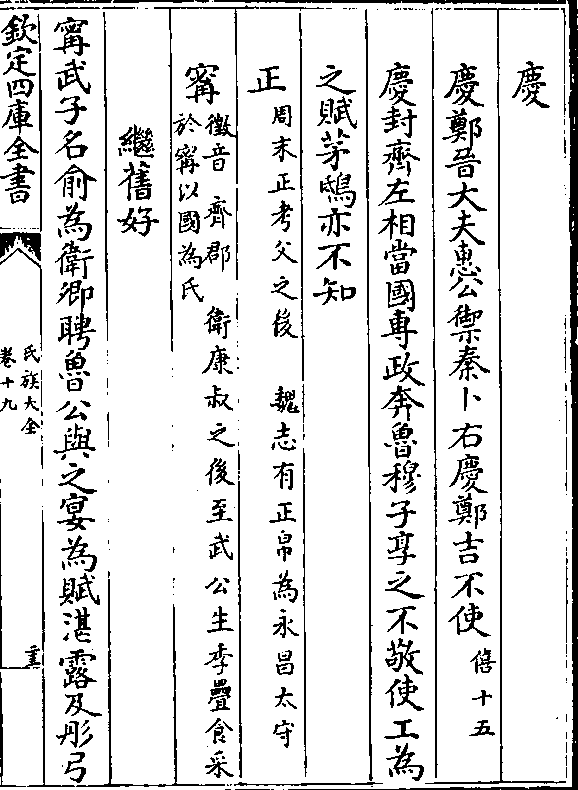 慶
慶鄭晉大夫惠公御秦卜右慶鄭吉不使僖十五
慶封齊左相當國専政奔魯穆子享之不敬使工為
之賦茅鴟亦不知
正周末正考父之後　魏志有正帛為永昌太守
寗徵音　齊郡　衛康叔之後至武公生季亹食采
於寗以國為氏
繼舊好
寗武子名俞為衛卿聘魯公與之宴為賦湛露及彤弓
欽定四庫全書
氏族大全
卷十九